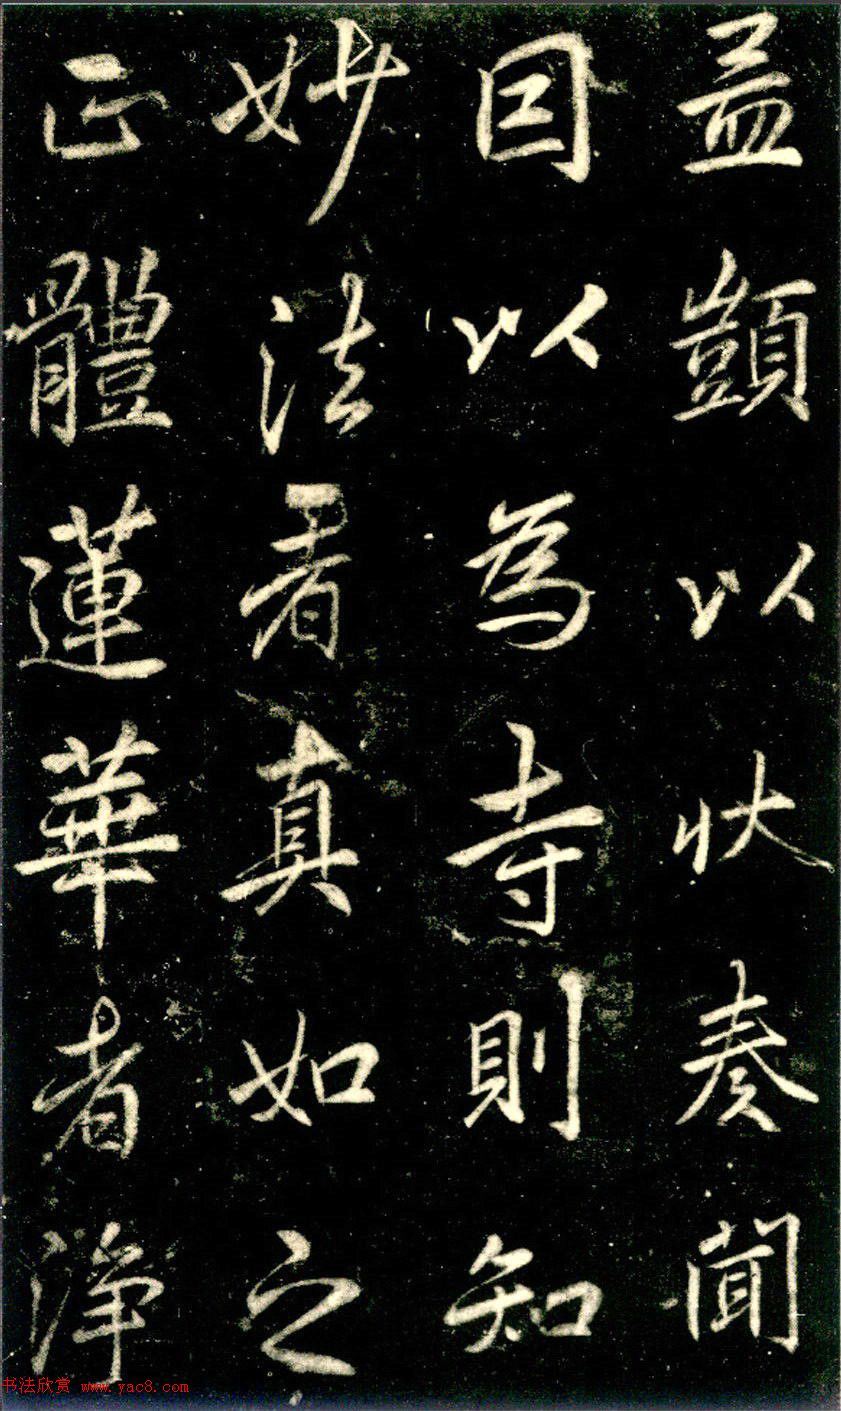 盖顗以狀奏聞
因以為寺則知
妙法者真如之
正體蓮華者淨
书法欣赏 www.yac8.com